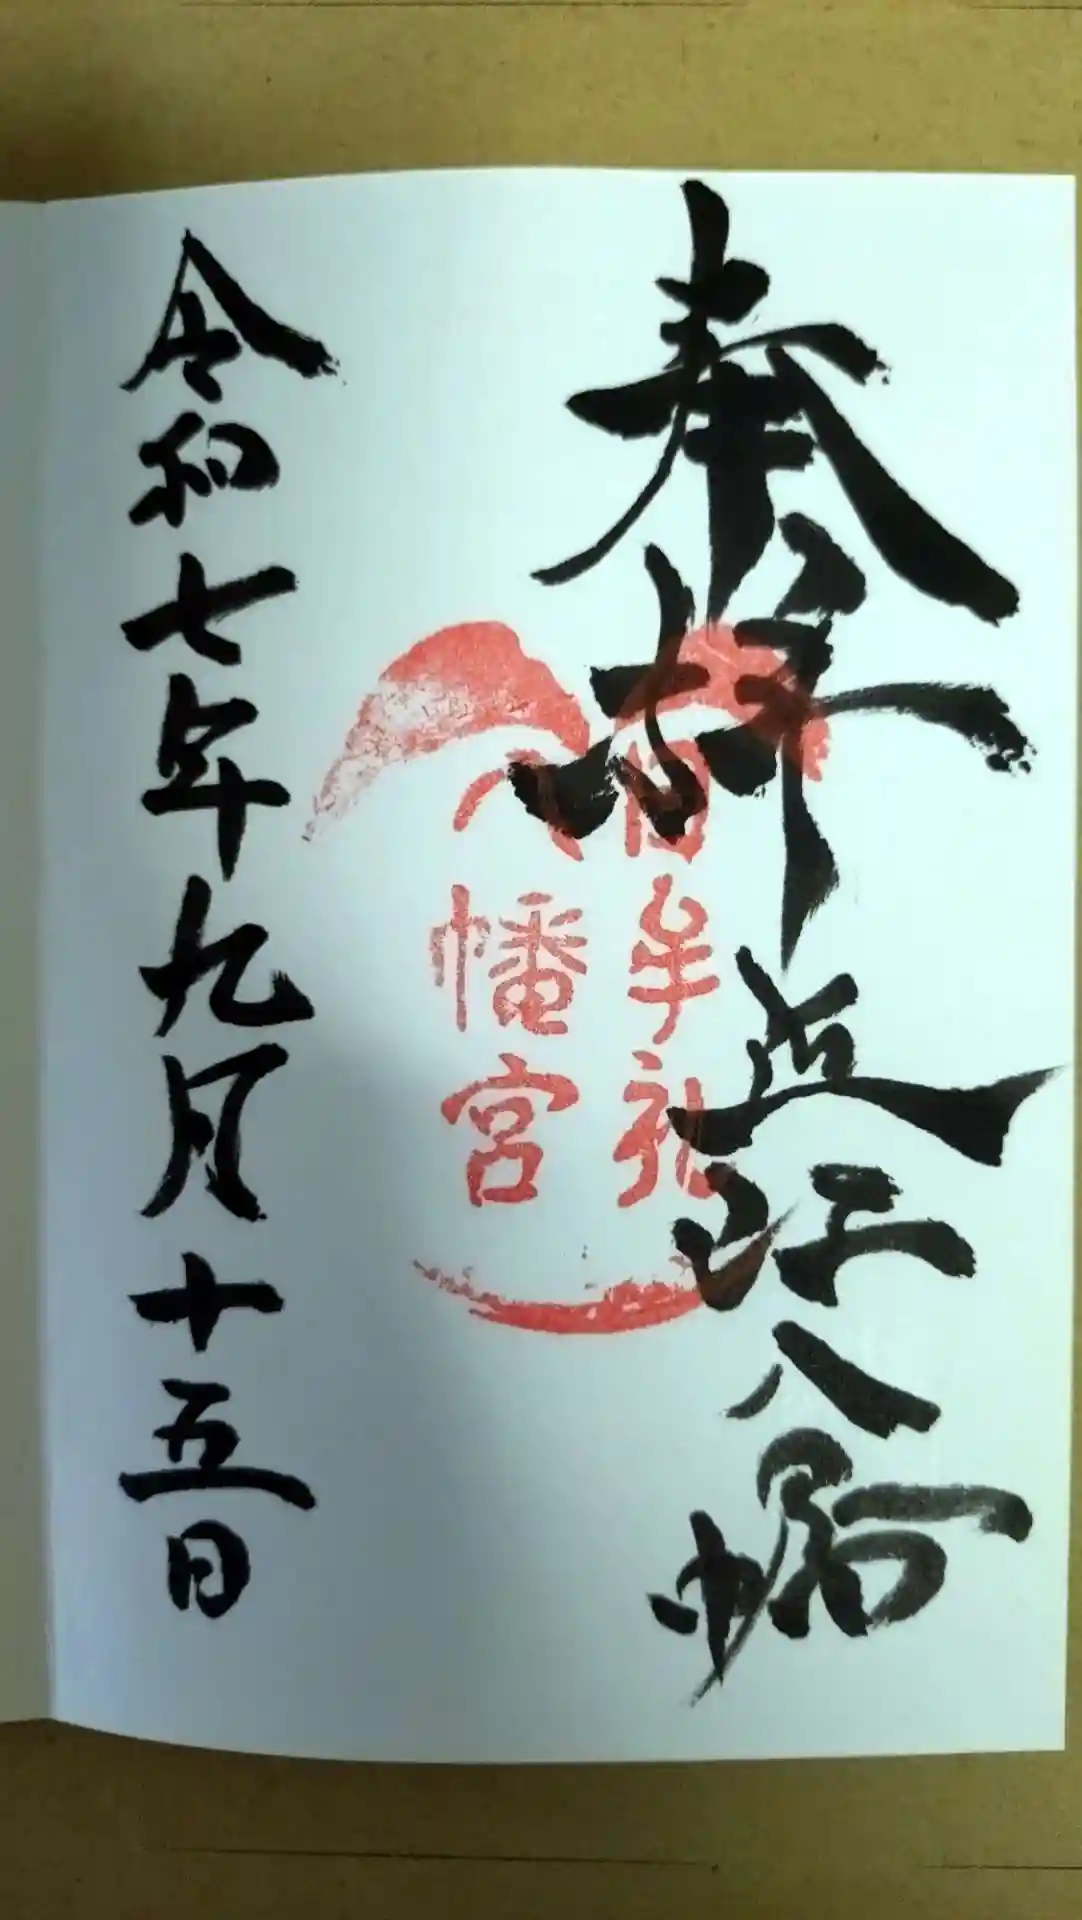 奉拝 近江八幡
日牟礼
八幡宮
令和七年九月十五日